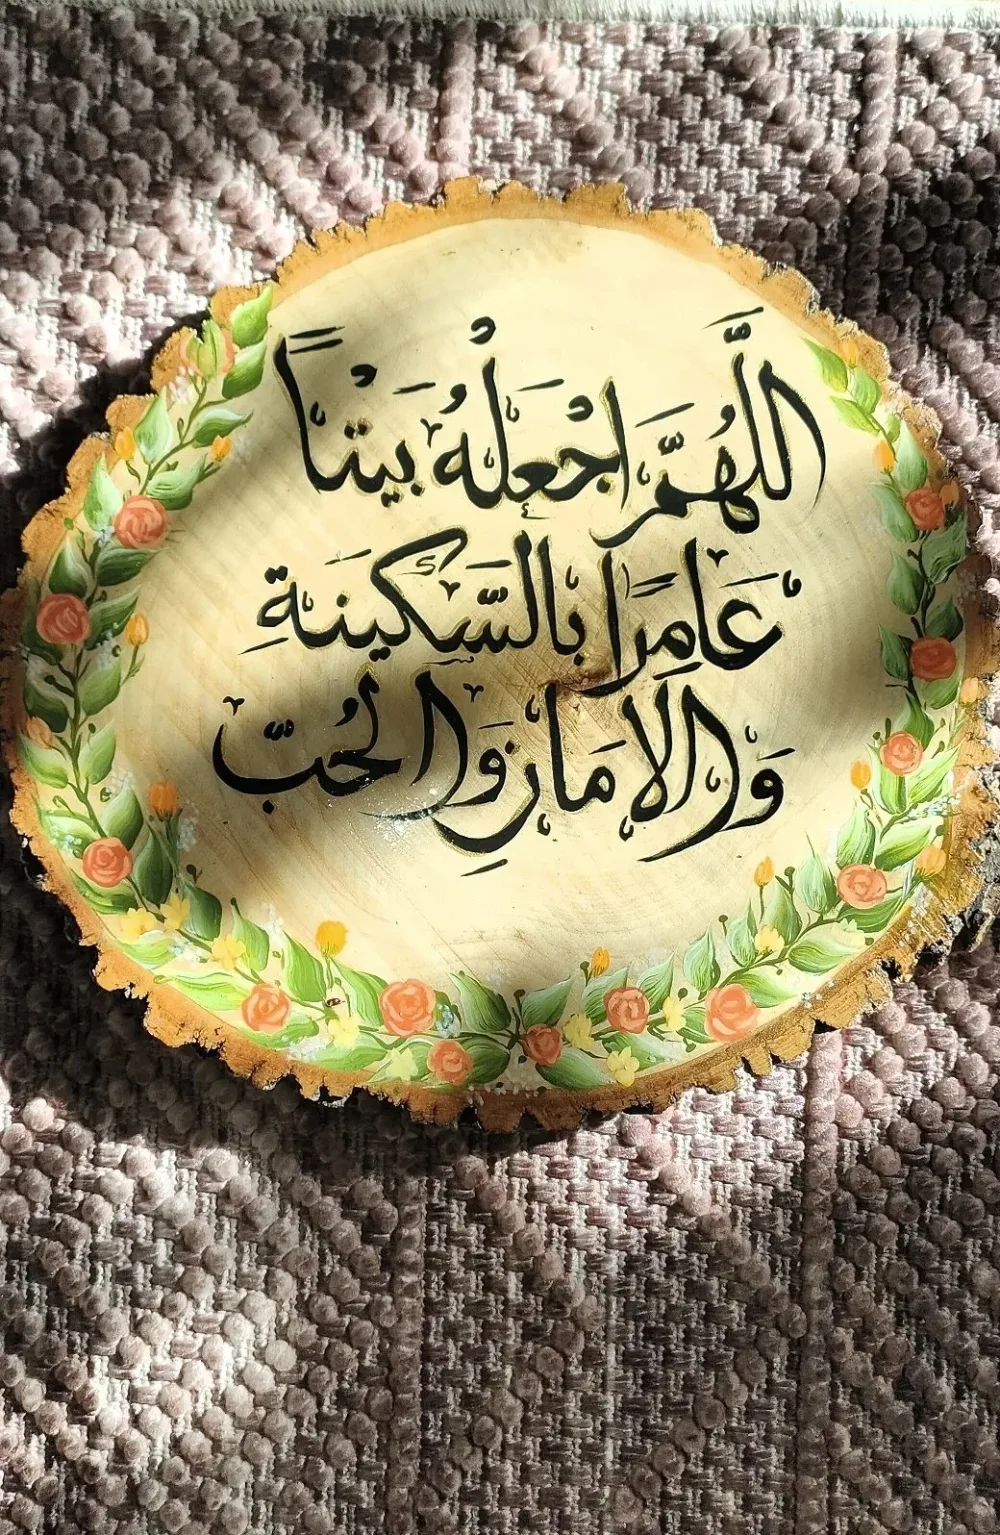 اللَّهُمَّ اجْعَلْهُ بَيْتاً
عَامِرًا بِالسَّكِينَةِ
وَالْأَمَانِ وَالْحُبّ